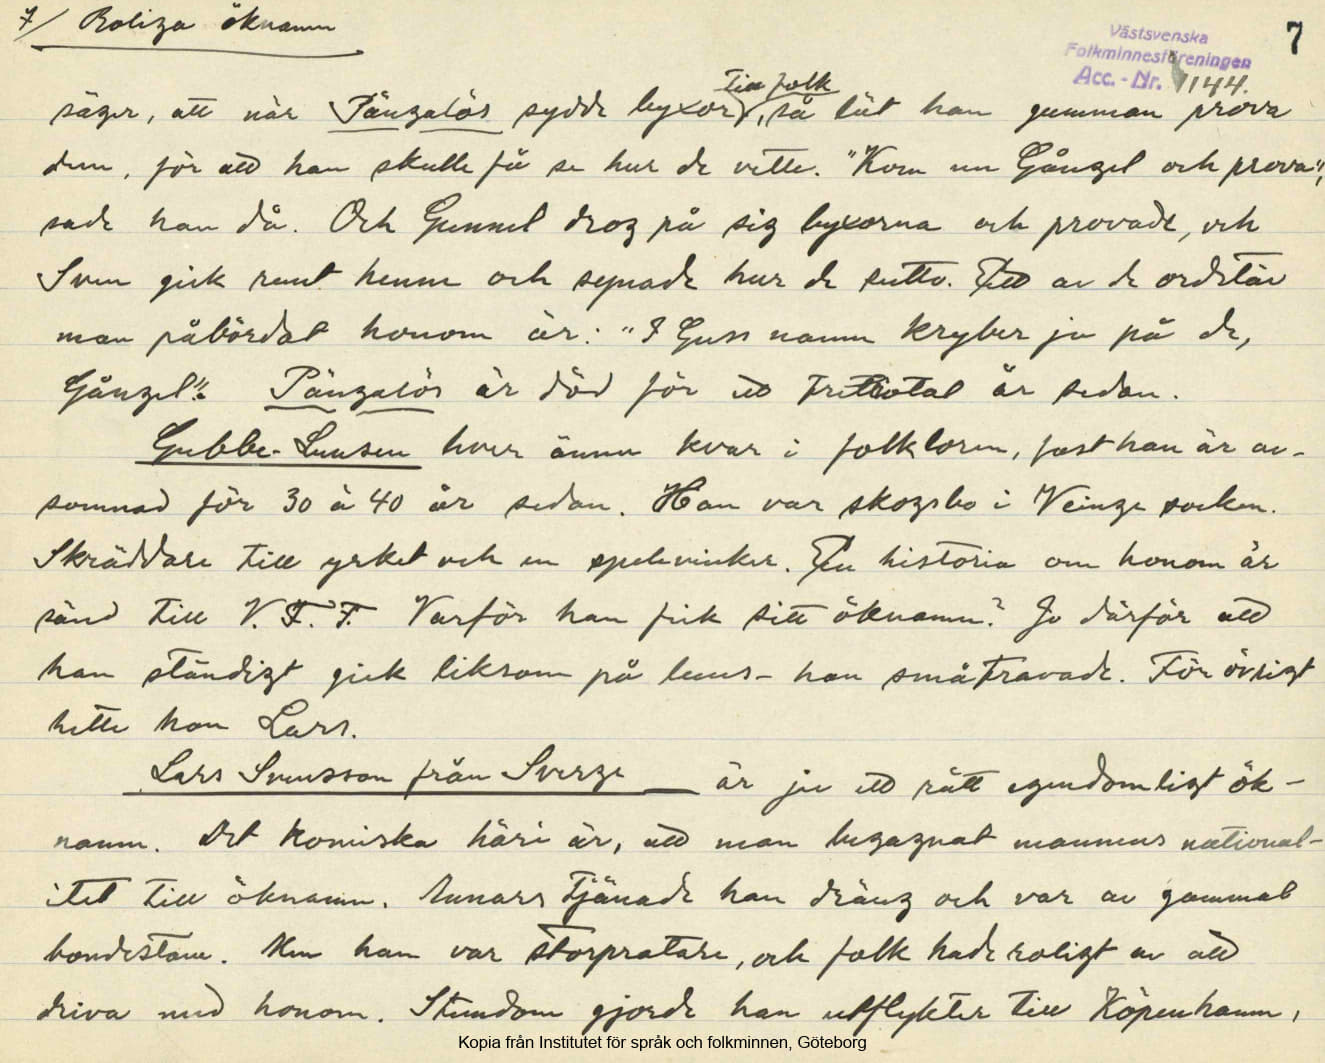 7/ Roliga öknamn
7
Västsvenska
Folkminnesföreningen
Acc. - Nr. 1144.
säger, att när Pängalös sydde byxor till folk, så lät han gumman prova
dem, för att han skulle få se hur de vette. "Kom nu Gångel och prova",
sade han då. Och Gunnel drog på sig byxorna och provade, och
Sven gick runt henne och synade hur de sutto. Ett av de ordstäv
man påbördat honom är: "I Guss namn kryber ja på de,
Gångel". Pängalös är död för ett trettiotal år sedan.
Gubbe-Lunsen lever ännu kvar i folkloren, fast han är av-
somnad för 30 à 40 år sedan. Han var skogsbo i Veinge socken.
Skräddare till yrket och en spelevinker. En historia om honom är
sänd till V.F.F. Varför han fick sitt öknamn? Jo därför att
han ständigt gick liksom på luns - han småtravade. För övrigt
hette han Lars.
Lars Svensson från Sverge är ju ett rätt egendomligt ök-
namn. Det komiska häri är, att man begagnat mannens national-
itet till öknamn. Annars tjänade han dräng och var av gammal
bondestam. Men han var storpratare, och folk hade roligt av att
driva med honom. Stundom gjorde han utflykter till Köpenhamn,
Kopia från Institutet för språk och folkminnen, Göteborg